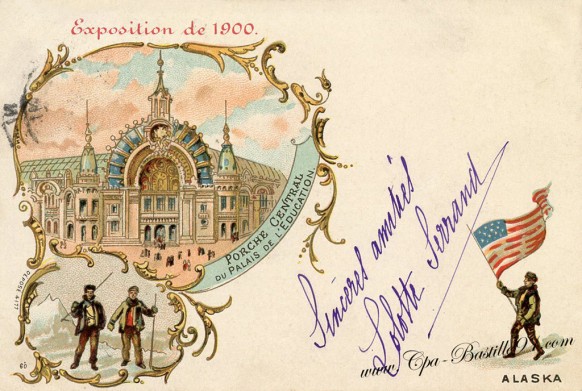 Exposition de 1900.
PORCHE CENTRAL
DU PALAIS DE L'EDUCATION
DÉPOSÉ 4177
Sincères amitiés
Lolotte Serrand
www.Cpa-Bastille91.com
ALASKA